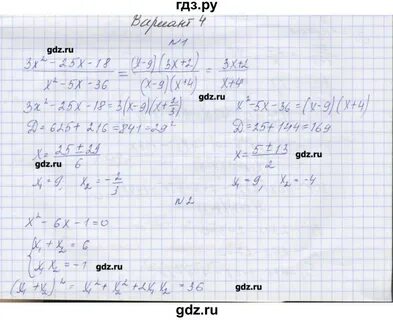 гдз.ру
Вариант 4
№1
(3x² - 25x - 18)/(x² - 5x - 36) = ((x-9)(3x+2))/((x-9)(x+4)) = (3x+2)/(x+4)
3x² - 25x - 18 = 3(x-9)(x+2/3) x² - 5x - 36 = (x-9)(x+4)
D = 625 + 216 = 841 = 29² D = 25 + 144 = 169
x = (25 ± 29)/6 x = (5 ± 13)/2
x₁ = 9, x₂ = -2/3 x₁ = 9, x₂ = -4
№2
x² - 6x - 1 = 0
{ x₁ + x₂ = 6
{ x₁x₂ = -1
(x₁ + x₂)² = x₁² + x₂² + 2x₁x₂ = 36
гдз.ру